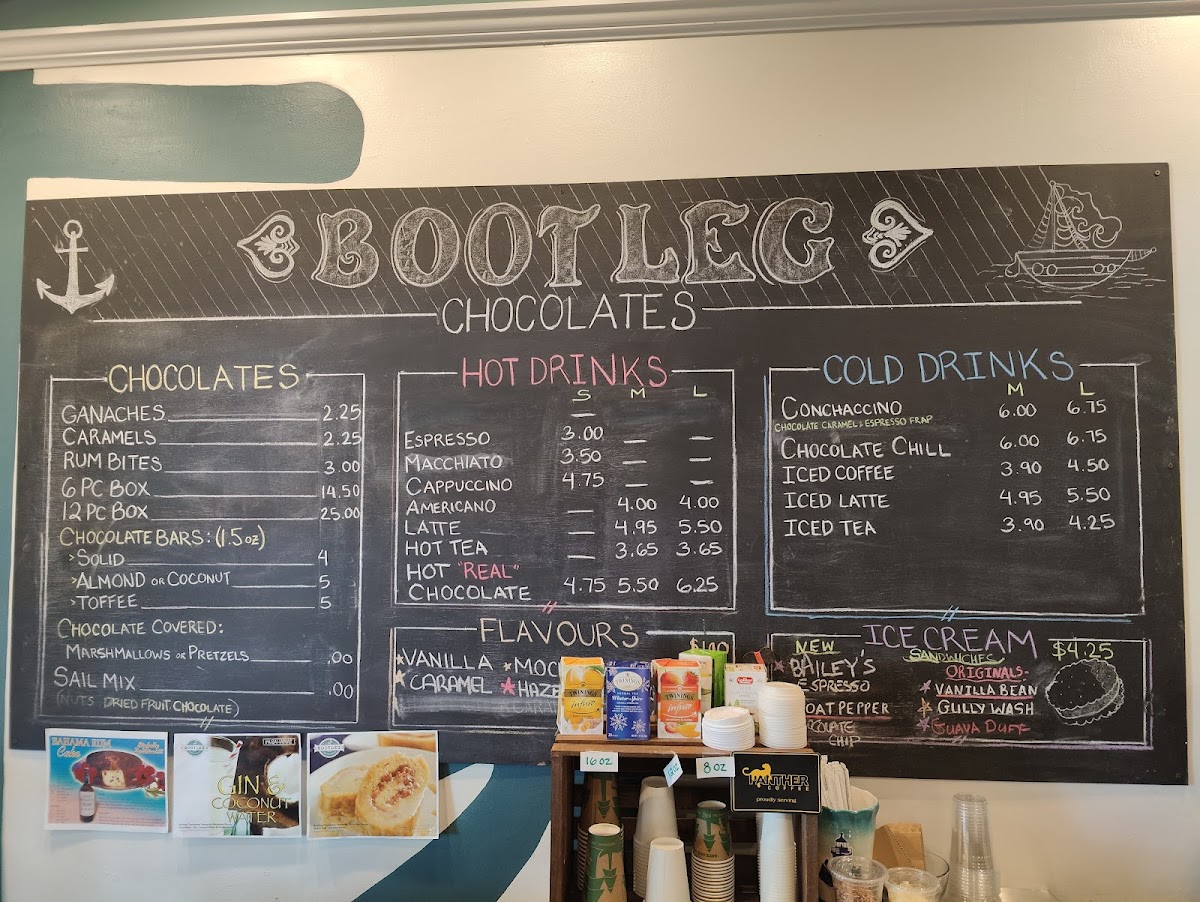 BOOTLEG
CHOCOLATES
CHOCOLATES
GANACHES 2.25
CARAMELS 2.25
RUM BITES 3.00
6 PC BOX 14.50
12 PC BOX 25.00
CHOCOLATE BARS: (1.5oz)
>SOLID 4
>ALMOND OR COCONUT 5
>TOFFEE 5
CHOCOLATE COVERED:
MARSHMALLOWS OR PRETZELS .00
SAIL MIX .00
(NUTS DRIED FRUIT CHOCOLATE)
HOT DRINKS
S M L
ESPRESSO 3.00 — —
MACCHIATO 3.50 — —
CAPPUCCINO 4.75 — —
AMERICANO — 4.00 4.00
LATTE — 4.95 5.50
HOT TEA — 3.65 3.65
HOT "REAL"
CHOCOLATE 4.75 5.50 6.25
COLD DRINKS
M L
CONCHACCINO 6.00 6.75
CHOCOLATE CARAMEL & ESPRESSO FRAP
CHOCOLATE CHILL 6.00 6.75
ICED COFFEE 3.90 4.50
ICED LATTE 4.95 5.50
ICED TEA 3.90 4.25
FLAVOURS
VANILLA
CARAMEL
ICE CREAM
SANDWICHES
$4.25
NEW
BAILEY'S
ESPRESSO
PEPPER
CHIP
ORIGINALS:
VANILLA BEAN
GULLY WASH
GUAVA DUFF
BAHAMA RUM
Cake
GIN &
COCONUT
WATER
TWININGS
infuso
TWININGS
Winter Spice
TWININGS
infuso
16 OZ
12 OZ
8 OZ
PANTHER
COFFEE
proudly serving